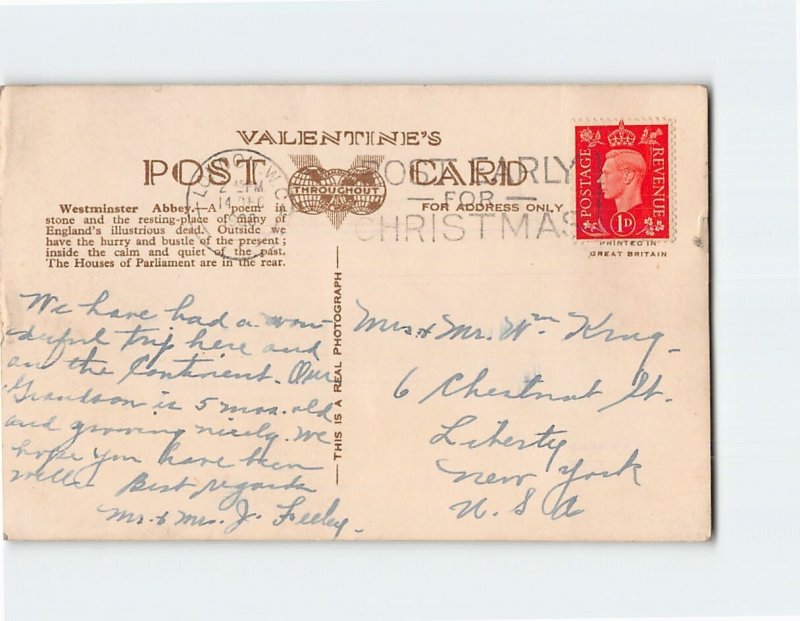 VALENTINE'S
POST CARD
THROUGHOUT
FOR ADDRESS ONLY
POST EARLY
FOR
CHRISTMAS
LONDON W.C.
PM
14 DEC
POSTAGE
REVENUE
1D
PRINTED IN
GREAT BRITAIN
Westminster Abbey.—A poem in
stone and the resting-place of many of
England's illustrious dead. Outside we
have the hurry and bustle of the present;
inside the calm and quiet of the past.
The Houses of Parliament are in the rear.
THIS IS A REAL PHOTOGRAPH
We have had a won-
derful trip here and
on the Continent. Our
Grandson is 5 mos. old
and growing nicely. We
hope you have been
well. Best regards
Mr. & Mrs. J. Feeley.
Mrs & Mr. Wm Krug.
6 Chestnut St.
Liberty
New York
U. S A